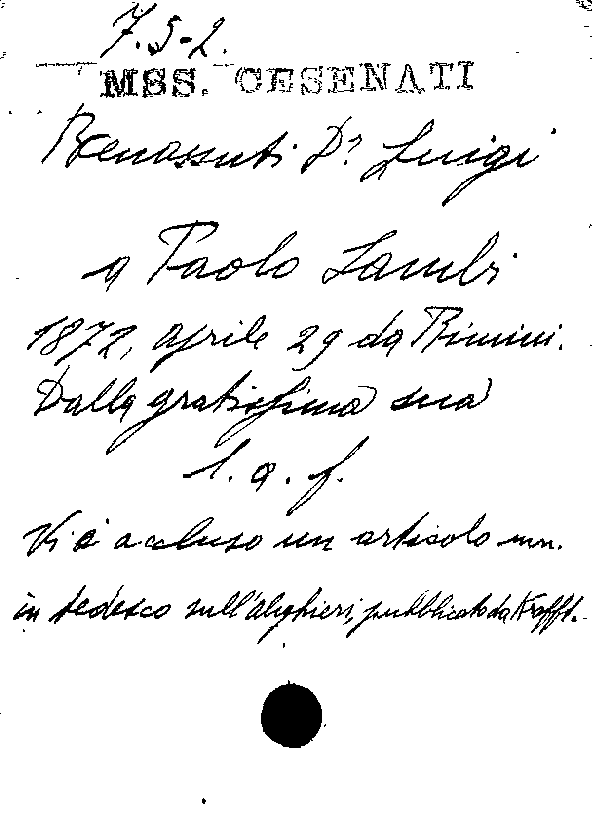 7.5-2.
MSS. CESENATI
Benassuti Dr. Luigi
a Paolo Lambi
1872, aprile 29 da Rimini.
Dalla gratissima sua
l. a. f.
Vi è accluso un articolo mn.
in tedesco sull'Alighieri, pubblicato da Krafft.